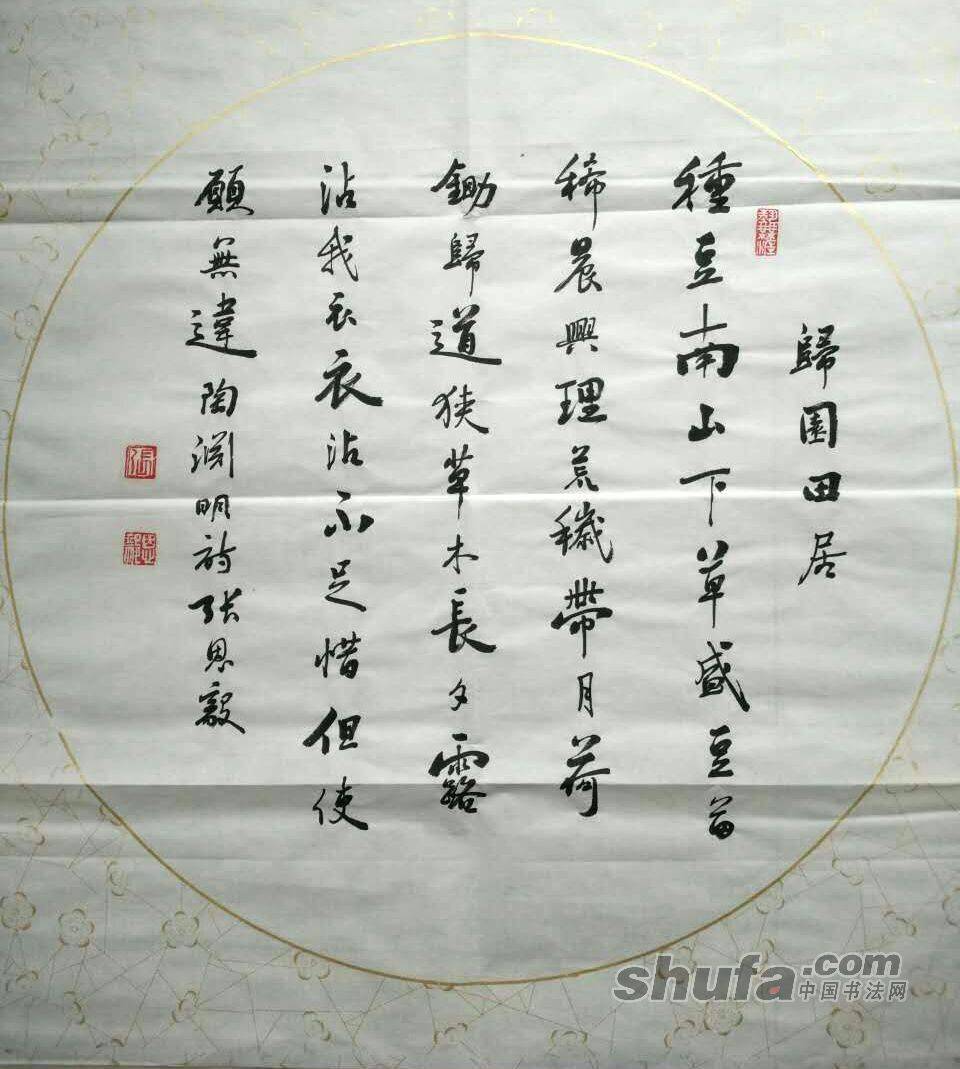 歸園田居
種豆南山下草盛豆苗
稀晨興理荒穢帶月荷
鋤歸道狹草木長夕露
沾我衣衣沾不足惜但使
願無違陶淵明詩張思毅
shufa.com
中国书法网